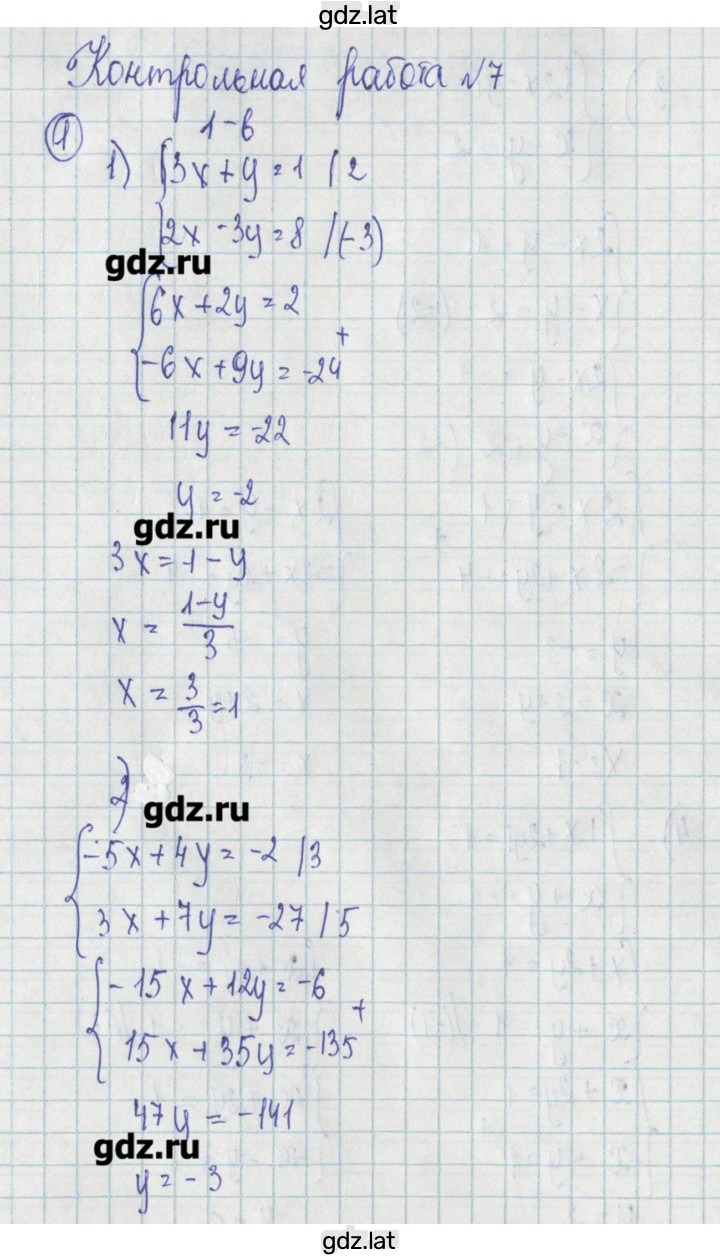 gdz.lat
Контрольная работа №7
1-в
① 1) {3x + y = 1 | 2
2x - 3y = 8 /(-3)
gdz.ru
{6x + 2y = 2
+
-6x + 9y = -24
11y = -22
y = -2
gdz.ru
3x = 1 - y
x = \frac{1-y}{3}
x = \frac{3}{3} = 1
2)
gdz.ru
{-5x + 4y = -2 | 3
3x + 7y = -27 | 5
{-15x + 12y = -6
+
15x + 35y = -135
47y = -141
gdz.ru
y = -3
gdz.lat